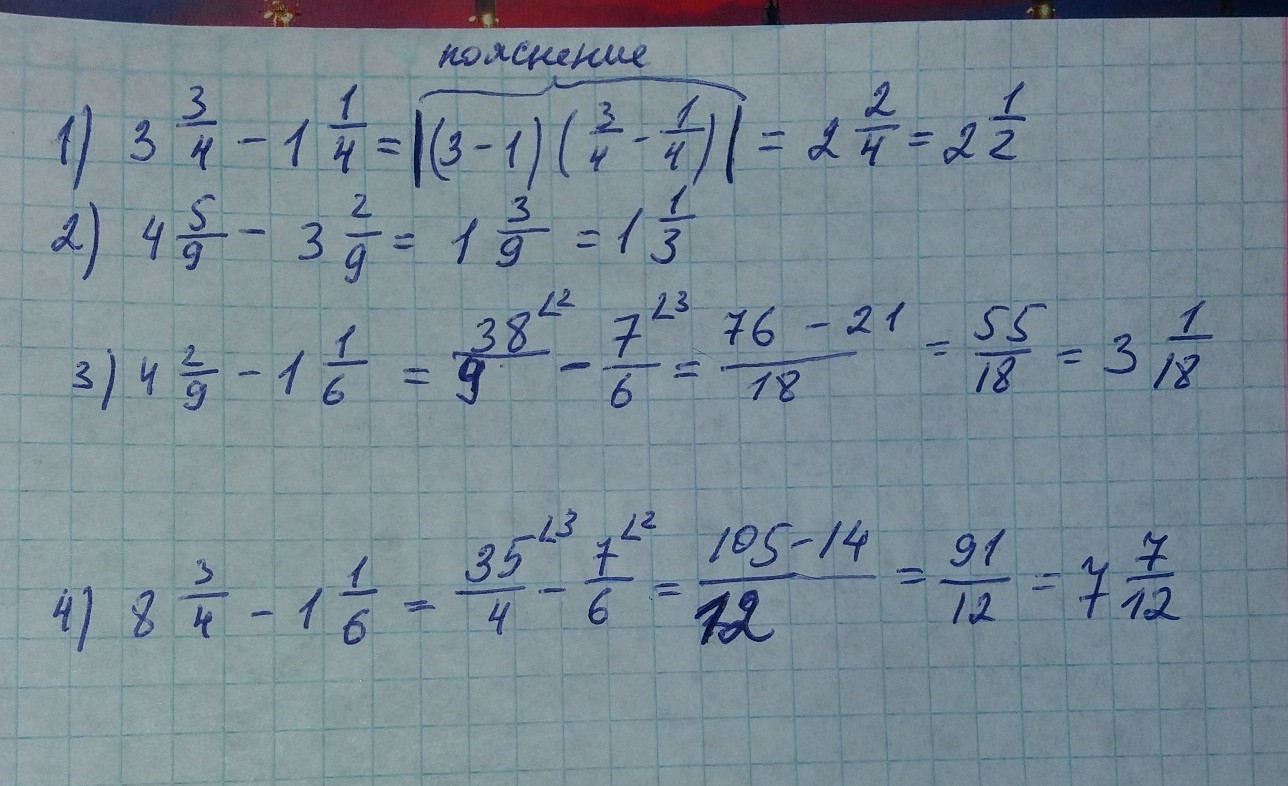 пояснение
1) 3 3/4 - 1 1/4 = |(3-1)(3/4 - 1/4)| = 2 2/4 = 2 1/2
2) 4 5/9 - 3 2/9 = 1 3/9 = 1 1/3
3) 4 2/9 - 1 1/6 = 38/9 ∠2 - 7/6 ∠3 = 76-21/18 = 55/18 = 3 1/18
4) 8 3/4 - 1 1/6 = 35/4 ∠3 - 7/6 ∠2 = 105-14/12 = 91/12 = 7 7/12